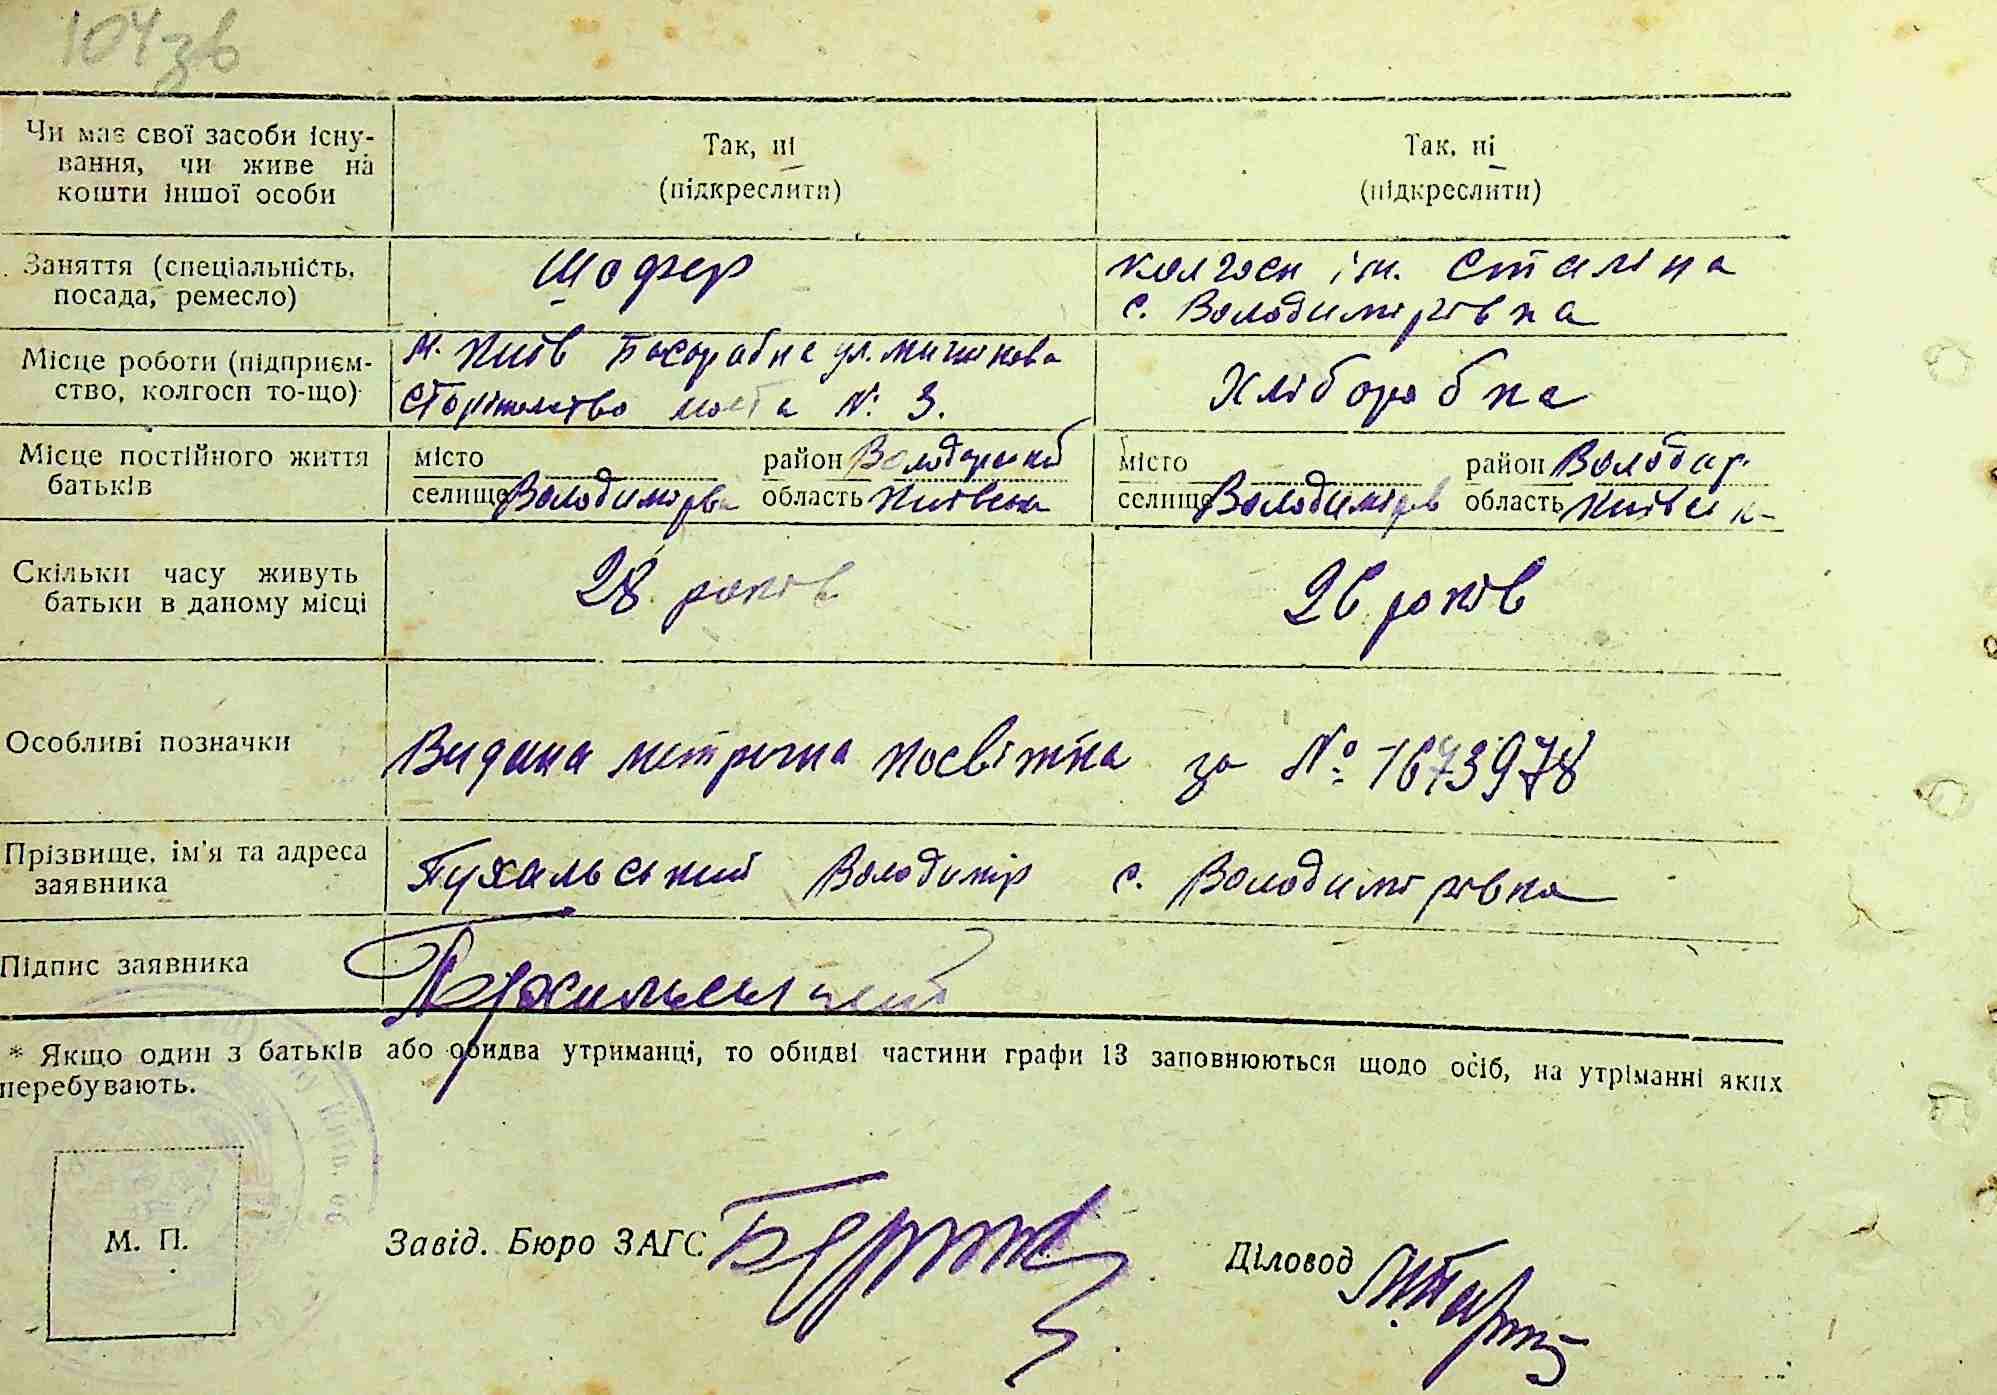 104зв
Чи має свої засоби існу-
вання, чи живе на
кошти іншої особи
Так, ні
(підкреслити)
Так, ні
(підкреслити)
Заняття (спеціальність,
посада, ремесло)
Шофер
колгосп ім. Сталіна
с. Володимирівка
Місце роботи (підприєм-
ство, колгосп то-що)
м. Київ ул.
моста № 3.
Хліборобка
Місце постійного життя
батьків
місто район
селище область Київська
місто район Володар.
селище Володимирів область
Скільки часу живуть
батьки в даному місці
28 років
26 років
Особливі позначки
Видана метрична посвітка за № 1673978
Прізвище, ім'я та адреса
заявника
Пухальський Володимір с. Володимирівка
Підпис заявника
Пухальський
* Якщо один з батьків або обидва утриманці, то обидві частини графи 13 заповнюються щодо осіб, на утріманні яких
перебувають.
М. П.
Завід. Бюро ЗАГС
Діловод